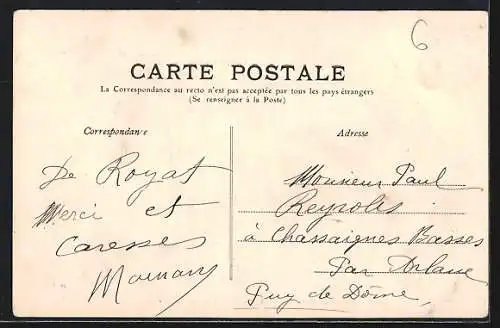 6
CARTE POSTALE
La Correspondance au recto n'est pas acceptée par tous les pays étrangers
(Se renseigner à la Poste)
Correspondance
Adresse
De Royat
Merci et
Caresses
Maman
Monsieur Paul
Reyrolis
à Chassaignes Basses
Par Arlanc
Puy de Dôme,